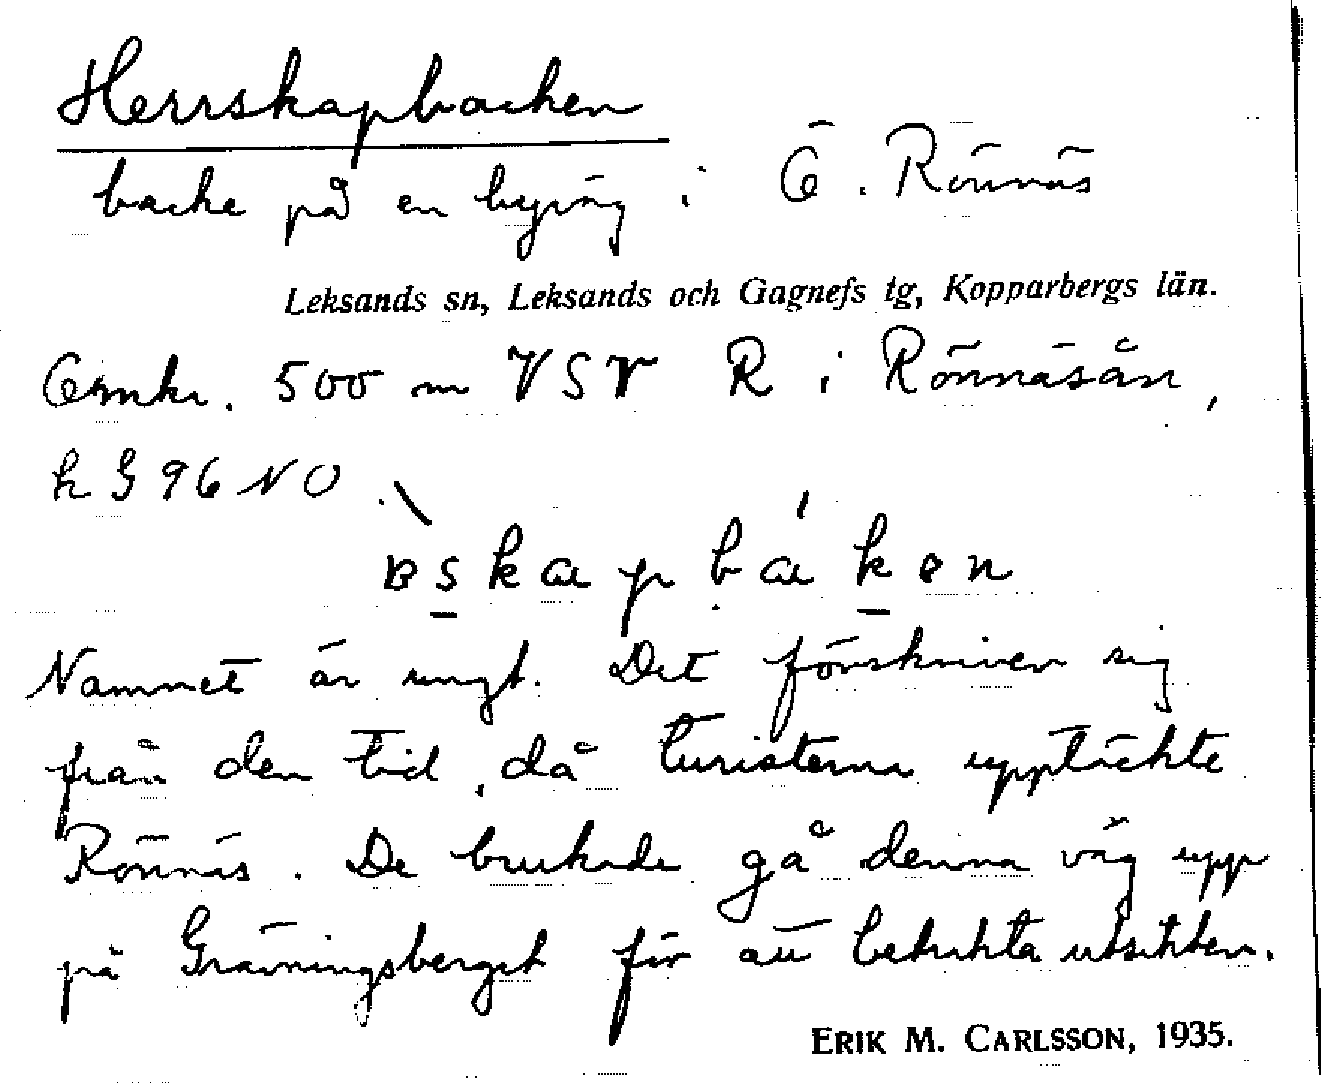 Herrskapbacken
backe på en byväg i Ö. Rönnäs
Leksands sn, Leksands och Gagnefs tg, Kopparbergs län.
Omkr. 500 m VSV R i Rönnäsån,
k G 96 NO.
Nammet är ungt. Det förskriver sig
från den tid, då turisterna upptäckte
Rönnäs. De brukade gå denna väg upp
på Grävningsberget för att betrakta utsikten.
ERIK M. CARLSSON, 1935.